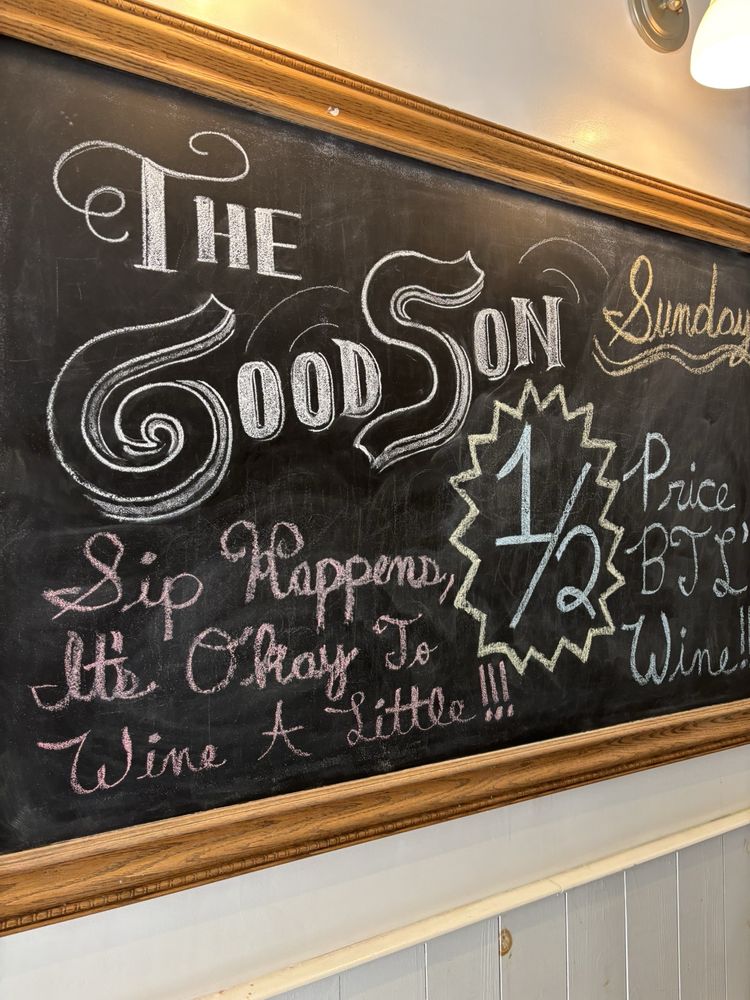 The
Good Son
Sip Happens,
It's O'kay To
Wine A Little!!!
Sunday
1/2
Price
BTL'
Wine!!